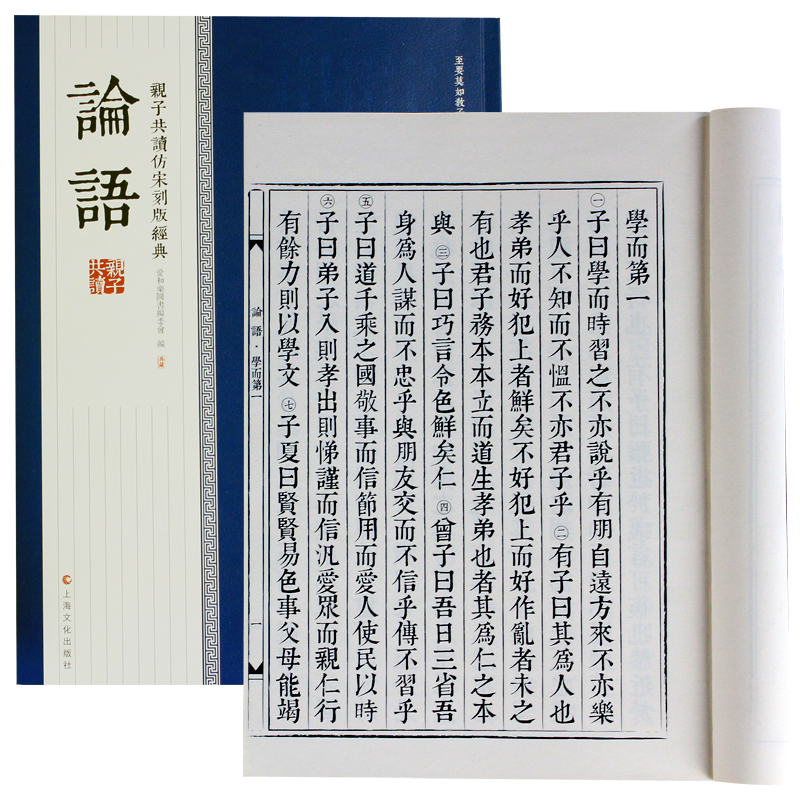 至要莫如教
親子共讀仿宋刻版經典
論語
親子
共讀
愛和樂圖書編委會 編
上海文化出版社
學而第一
㊀子曰學而時習之不亦說乎有朋自遠方來不亦樂
乎人不知而不慍不亦君子乎㊁有子曰其爲人也
孝弟而好犯上者鮮矣不好犯上而好作亂者未之
有也君子務本本立而道生孝弟也者其爲仁之本
與㊂子曰巧言令色鮮矣仁㊃曾子曰吾日三省吾
身爲人謀而不忠乎與朋友交而不信乎傳不習乎
㊄子曰道千乘之國敬事而信節用而愛人使民以時
㊅子曰弟子入則孝出則悌謹而信汎愛眾而親仁行
有餘力則以學文㊆子夏曰賢賢易色事父母能竭
論語·學而第一
一